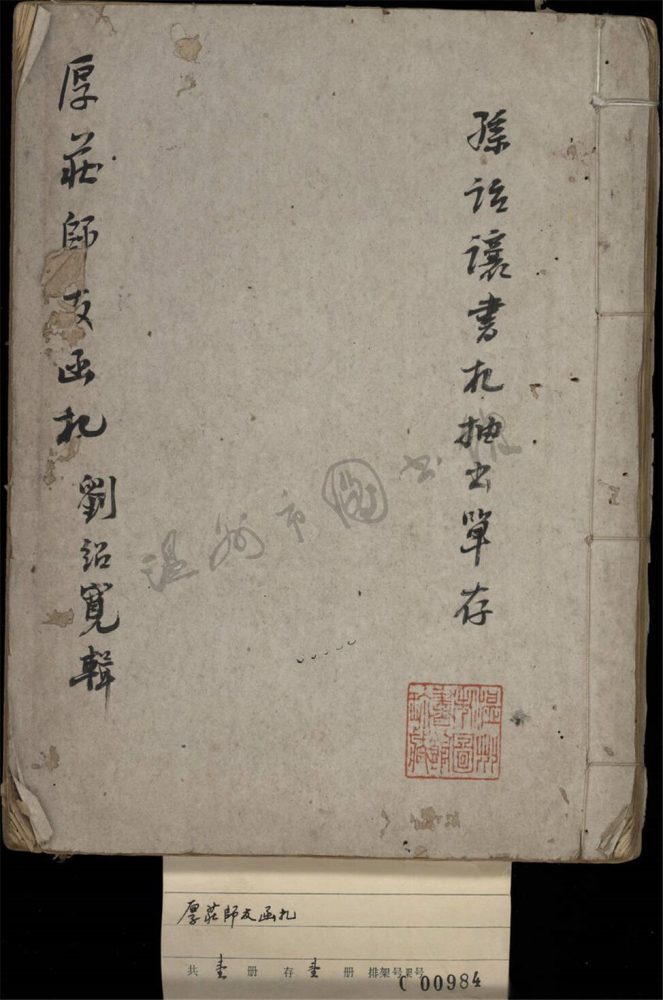 孫詒讓書札抽出單存
厚莊師友函札
劉紹寬輯
温州市圖書館
温州市圖書館藏
厚莊師友函札
共 壹 册 存 壹 册 排架号
C 00984